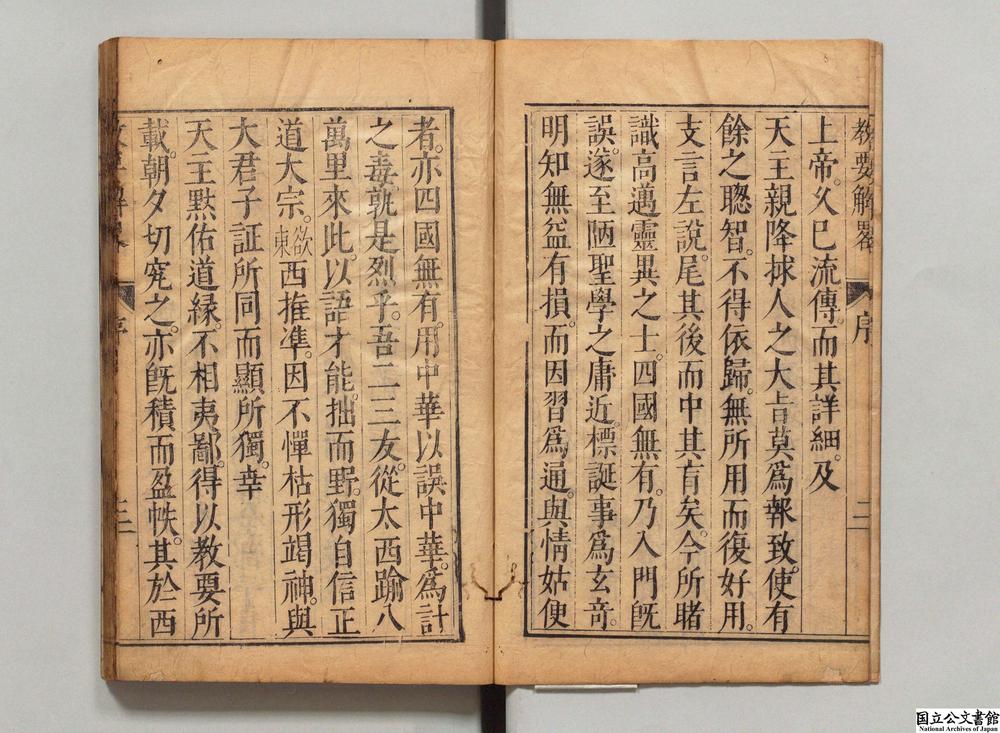 教要解畧 序 二
上帝。乆巳流傳。而其詳細。及
天主親降捄人之大㫖莫爲報致。使有
餘之聰智。不得依歸。無所用而復好用。
支言左說。尾其後而中其肓矣。今所睹
識高邁靈異之士。四國無有。乃入門旣
誤。遂至陋聖學之庸近。標誕事爲玄竒。
明知無益有損。而因習爲通。與情姑便
者。亦四國無有。用中華以誤中華。爲計
之毒。孰是烈乎。吾二三友。從太西踰八
萬里來此。以語才能。拙而野。獨自信正
道大宗。欲東西推準。因不憚枯形竭神。與
大君子証所同而顯所獨。幸
天主黙佑道緣。不相夷鄙。得以教要所
載。朝夕切究之。亦旣積而盈帙。其於西
国立公文書館
National Archives of Japan